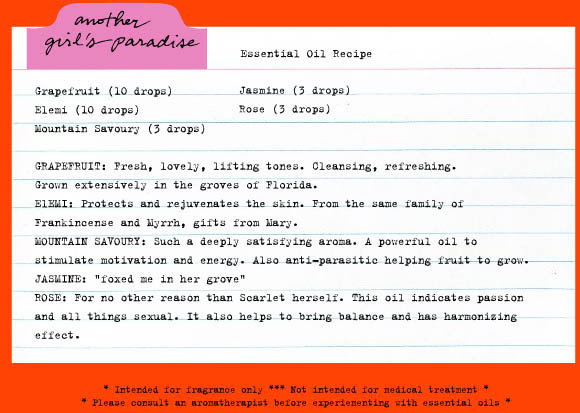 another
girl's paradise
Essential Oil Recipe
Grapefruit (10 drops) Jasmine (3 drops)
Elemi (10 drops) Rose (3 drops)
Mountain Savoury (3 drops)
GRAPEFRUIT: Fresh, lovely, lifting tones. Cleansing, refreshing.
Grown extensively in the groves of Florida.
ElEMI: Protects and rejuvenates the skin. From the same family of
Frankincense and Myrrh, gifts from Mary.
MOUNTAIN SAVOURY: Such a deeply satisfying aroma. A powerful oil to
stimulate motivation and energy. Also anti-parasitic helping fruit to grow.
JASMINE: "foxed me in her grove"
ROSE: For no other reason than Scarlet herself. This oil indicates passion
and all things sexual. It also helps to bring balance and has harmonizing
effect.
* Intended for fragrance only *** Not intended for medical treatment *
* Please consult an aromatherapist before experiementing with essential oils *